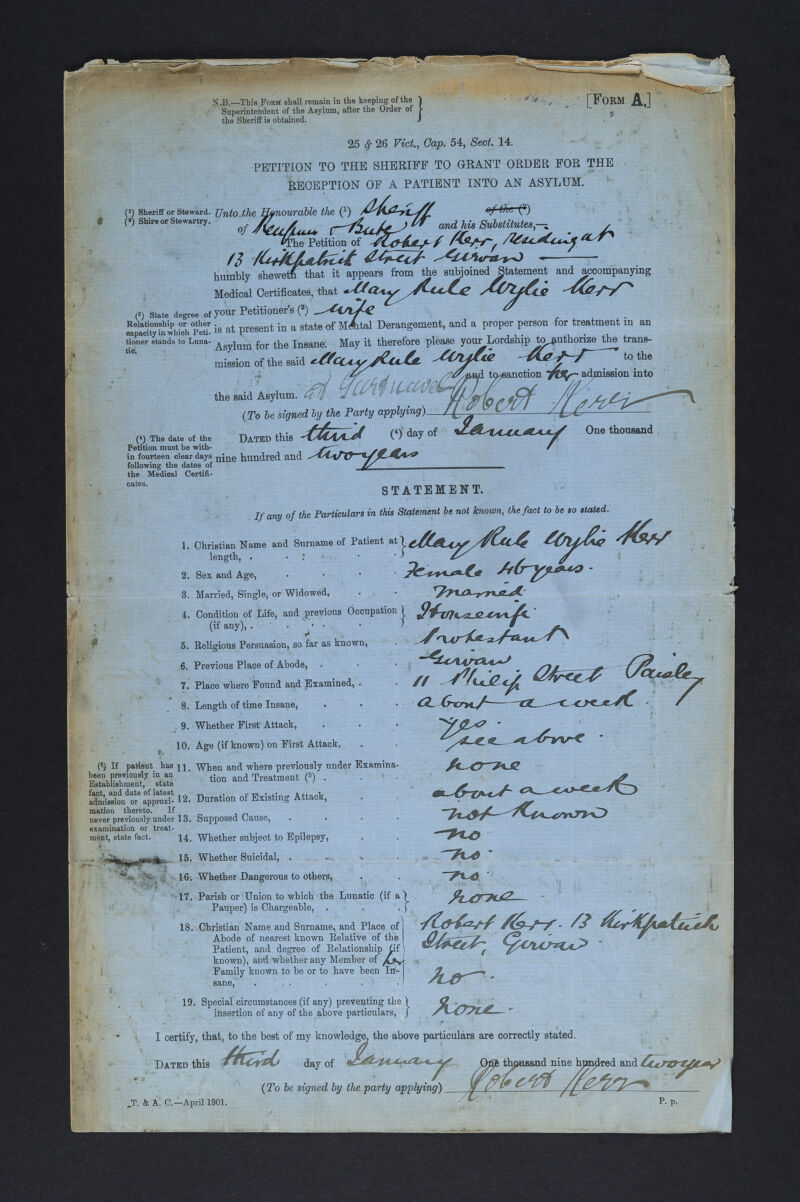 N.B.—This Form shall remain in the keeping of the
Superintendent of the Asylum, after the Order of
the Sheriff is obtained.
[Form A.]
25 & 26 Vict., Cap. 54, Sect. 14.
PETITION TO THE SHERIFF TO GRANT ORDER FOR THE
RECEPTION OF A PATIENT INTO AN ASYLUM.
(¹) Sheriff or Steward.
(²) Shire or Stewartry.
Unto the Honourable the (¹) Sheriff of the (²)
of Renfrew & Bute and his Substitutes,—
The Petition of Robert Kerr, residing at
13 Kirkpatrick Street Girvan
humbly sheweth that it appears from the subjoined Statement and accompanying
Medical Certificates, that Mary Rule Wylie Kerr
(³) State degree of
Relationship or other
capacity in which Peti-
tioner stands to Luna-
tic.
your Petitioner's (³) wife
is at present in a state of Mental Derangement, and a proper person for treatment in an
Asylum for the Insane. May it therefore please your Lordship to authorize the trans-
mission of the said Mary Rule Wylie Kerr to the
and to sanction her admission into
the said Asylum. at Gartnavel
(To be signed by the Party applying) Robert Kerr
(⁴) The date of the
Petition must be with-
in fourteen clear days
following the dates of
the Medical Certifi-
cates.
Dated this third (⁴) day of January One thousand
nine hundred and two years
STATEMENT.
If any of the Particulars in this Statement be not known, the fact to be so stated.
1. Christian Name and Surname of Patient at
length, . Mary Rule Wylie Kerr
2. Sex and Age, Female 46 years.
3. Married, Single, or Widowed, married
4. Condition of Life, and previous Occupation
(if any), . Housewife
5. Religious Persuasion, so far as known, Protestant
6. Previous Place of Abode, Girvan
7. Place where Found and Examined, 11 Philip Street Paisley
8. Length of time Insane, about a week.
9. Whether First Attack, yes.
10. Age (if known) on First Attack, see above.
(⁵) If patient has
been previously in an
Establishment, state
fact, and date of latest
admission or approxi-
mation thereto. If
never previously under
examination or treat-
ment, state fact.
11. When and where previously under Examina-
tion and Treatment (⁵) . none
12. Duration of Existing Attack, about a week
13. Supposed Cause, not known
14. Whether subject to Epilepsy, no
15. Whether Suicidal, no.
16. Whether Dangerous to others, no.
17. Parish or Union to which the Lunatic (if a
Pauper) is Chargeable, none
18. Christian Name and Surname, and Place of
Abode of nearest known Relative of the
Patient, and degree of Relationship (if
known), and whether any Member of her
Family known to be or to have been In-
sane,
Robert Kerr. 13 Kirkpatrick
Street, Girvan.
no.
19. Special circumstances (if any) preventing the
insertion of any of the above particulars, none.
I certify, that, to the best of my knowledge, the above particulars are correctly stated.
Dated this third day of January One thousand nine hundred and two year
(To be signed by the party applying) Robert Kerr
T. & A. C.—April 1901.
P. p.